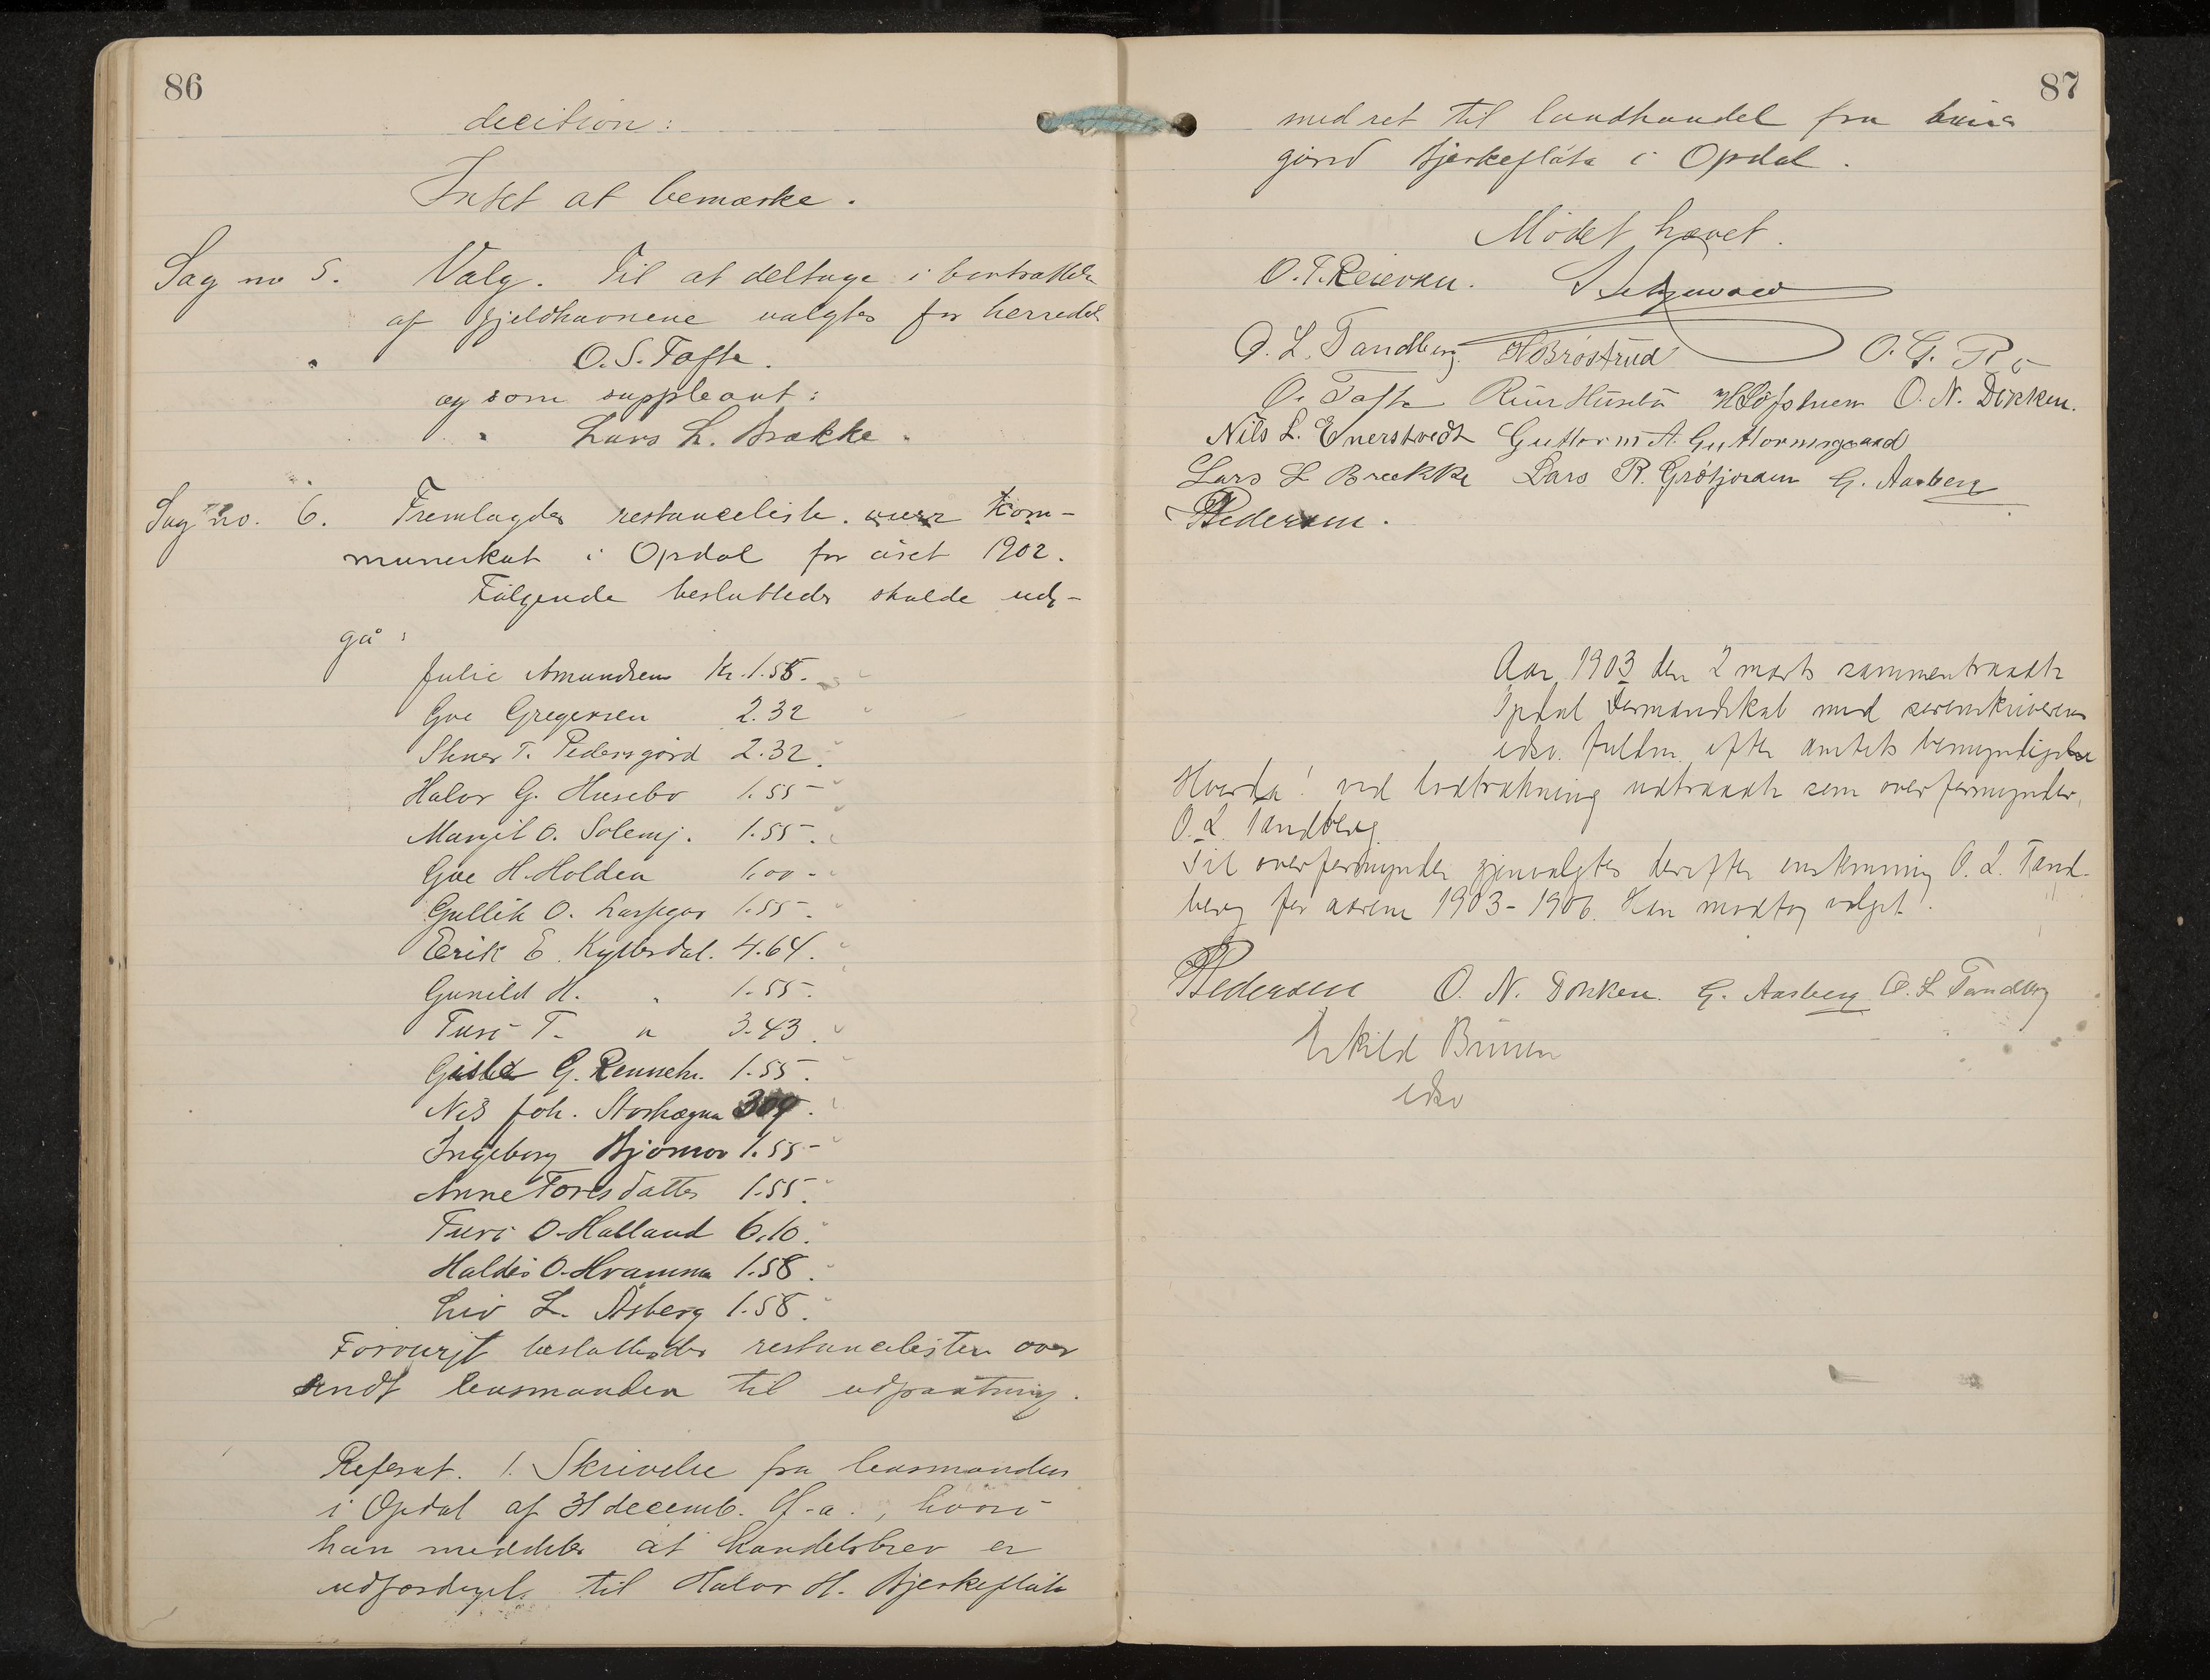 86
decition:
Intet at bemærke.
Sag no 5. Valg. Til at deltage i
af fjeldhavnene valgtes for herredet
O. S. Tafte.
og som suppleant:
" Lars L. Brække.
Sag no. 6. Fremlagdes restanceliste over kom-
muneskat i Opdal for året 1902.
Følgende besluttedes skulde ud-
gå:
Julie Amundsen Kr. 1.55.
Gregersen 2.32
T. Pedersgård 2.32.
Halvor G. Husebø 1.55
Margit O. 1.55.
H. Holden 1.00
Gullik O. 1.55.
Eerik E. 4.64.
Gunild H. " 1.55.
Turi T. " 3.43.
G. 1.55.
Nils Joh. 309.
Ingeborg 1.55
Anne Toresdatter 1.55.
Turi O. Halland 6.10.
O. Hvamma 1.58.
Liv L. Åsberg 1.58.
Forøvrigt besluttedes restancelisten over
sendt lensmanden til udpantning.
Referat. 1. Skrivelse fra lensmanden
i Opdal af 31 decemb. f.a., hvori
han meddeler at handelsbrev er
udfærdiget til Halvor H. Bjerkeflåta
87
med ret til landhandel fra
gård Bjerkeflåta i Opdal.
Mødet hævet.
O. T. Reiersen.
O. L. Tandberg. H Brøstrud O. G. Rø
O. Tafte O. N. Dokken.
Nils L. Enerstvedt Guttorm A. Guttormsgaard
Lars L Brekke Lars R. Grøtjorden G. Aasberg
Pedersen.
Aar 1903 den 2 marts sammentraadte
Opdal formandskab med sorenskriveren
edsv. fuldm. efter amtets bemyndigelse
Hvorda! ved lodtrækning udtraadte som overformynder,
O. L. Tandberg.
Til overformynder gjenvalgtes derefter enstemmig O. L. Tand-
berg for aarene 1903-1906. Han modtog valget.
Pedersen O. N. Dokken. G. Aasberg O. L Tandberg
Eskild Bruun
edsv